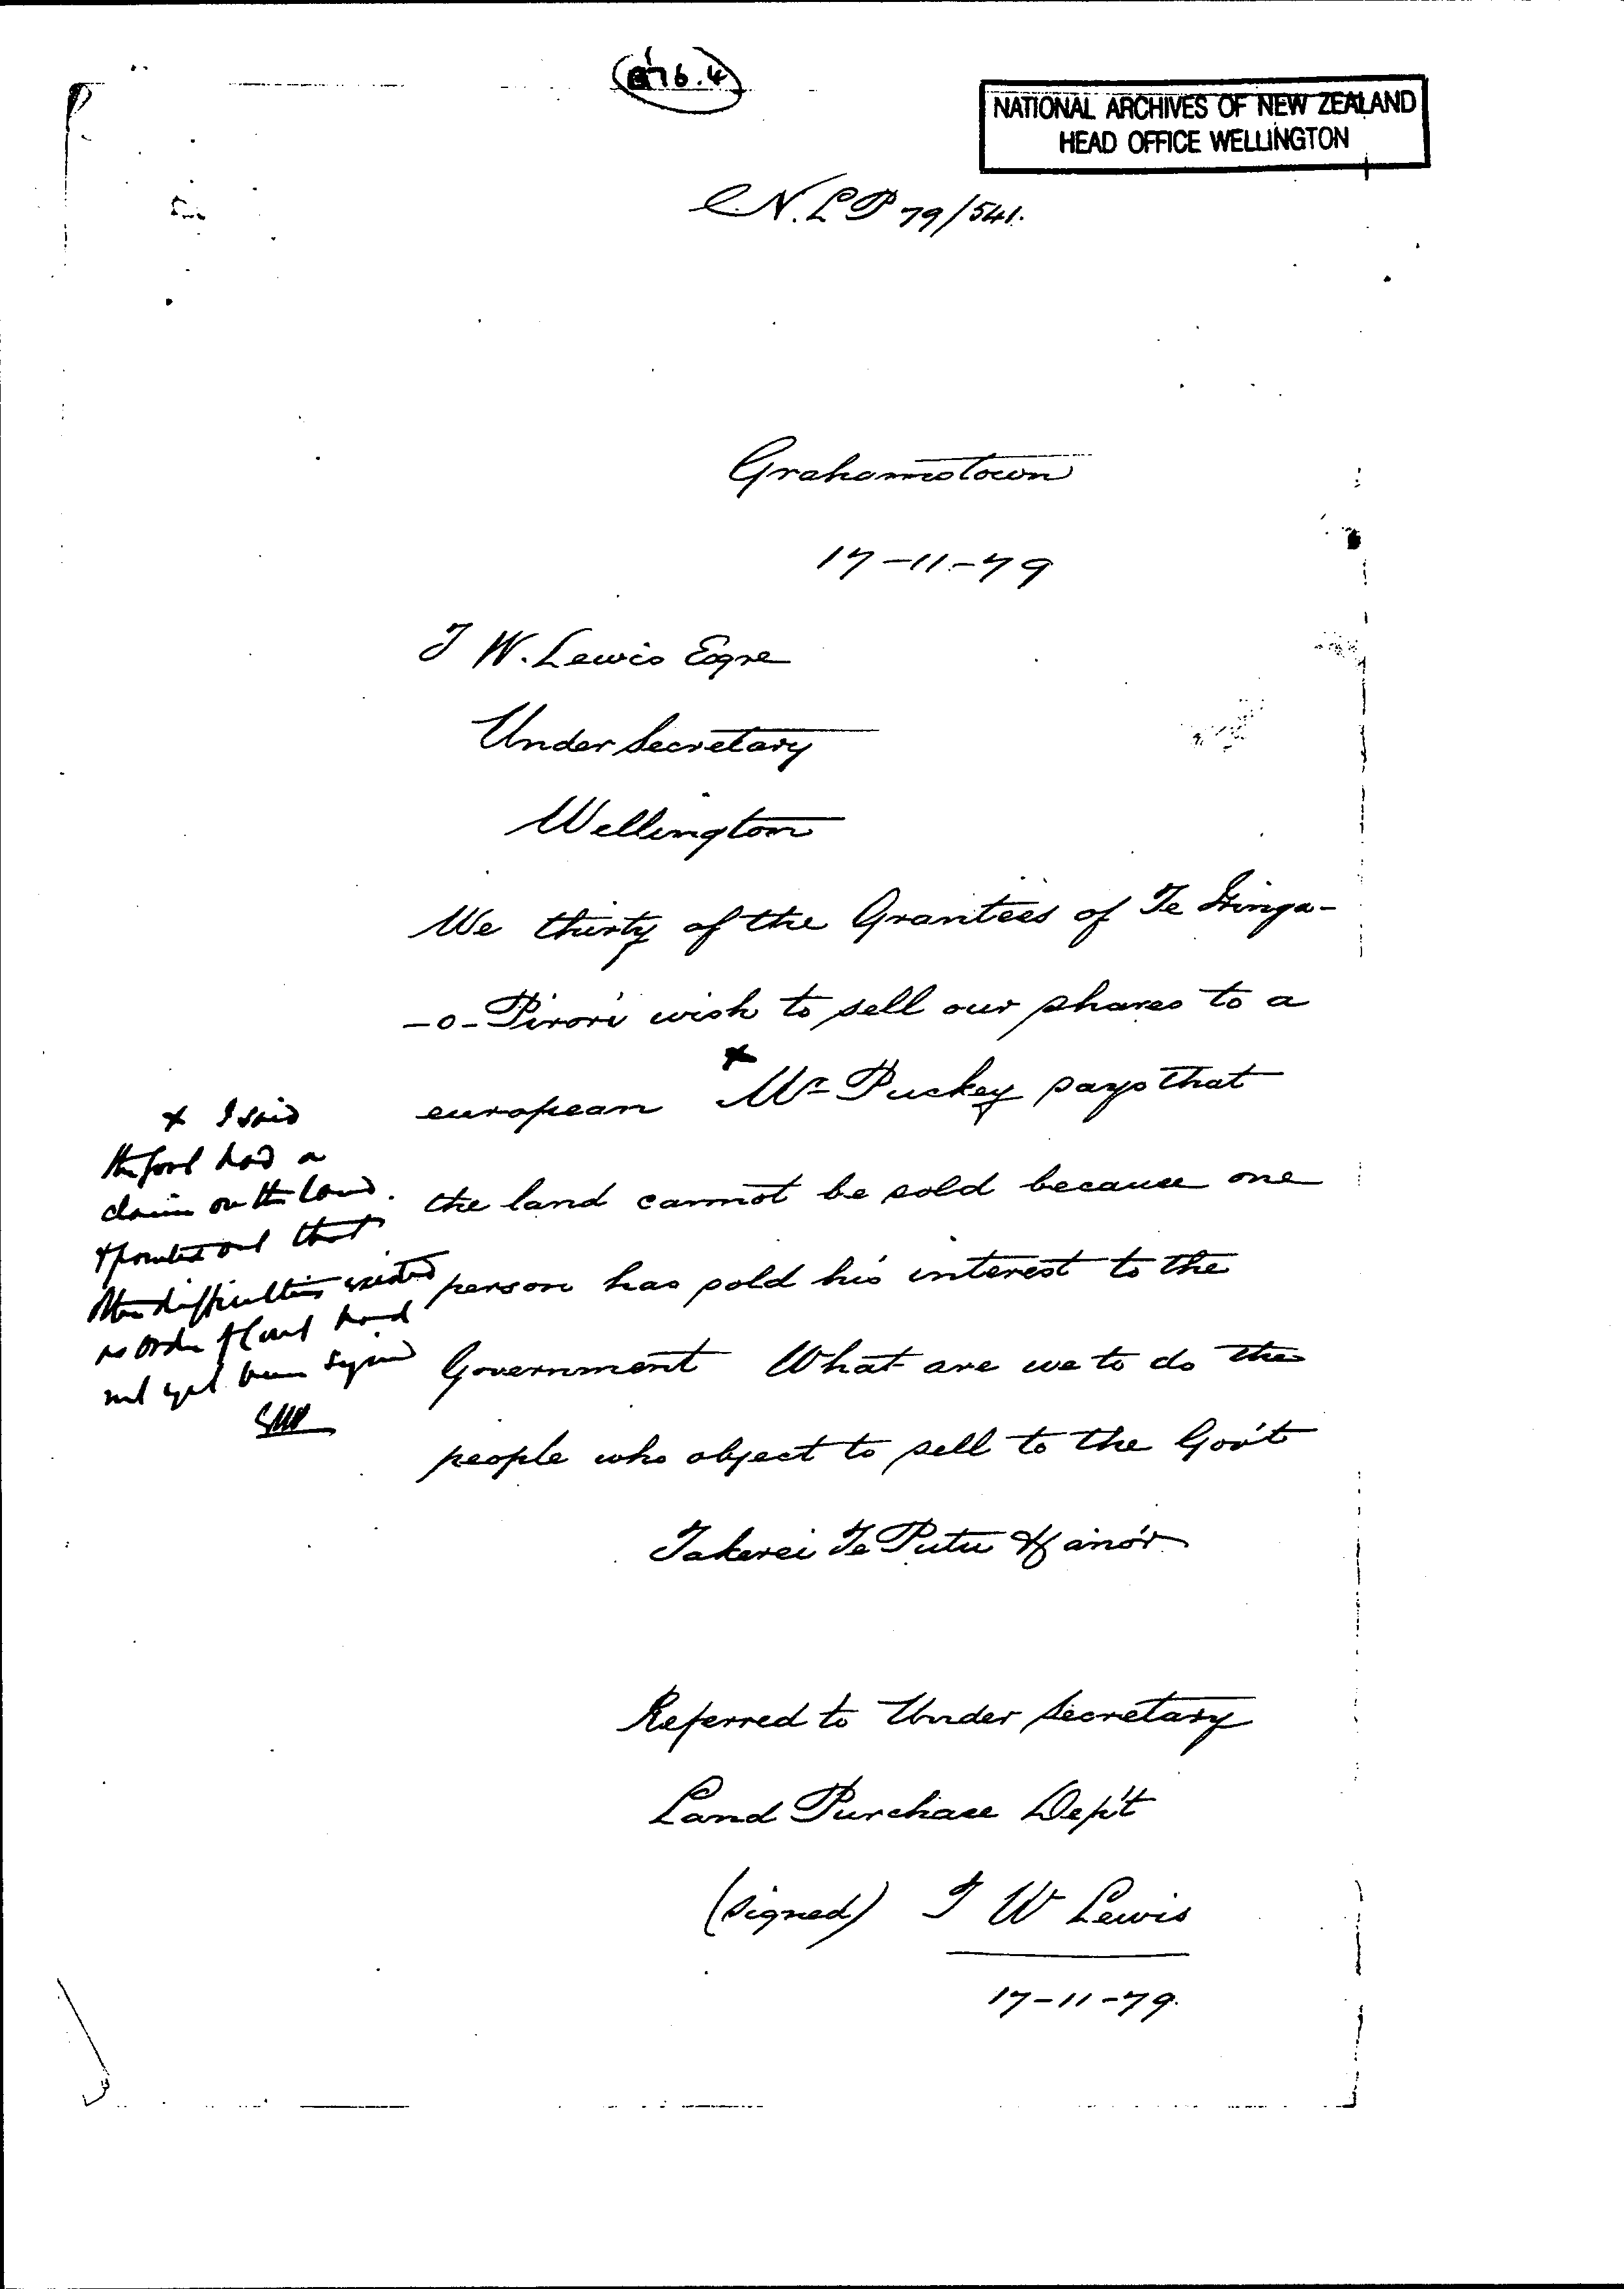 B76.4
NATIONAL ARCHIVES OF NEW ZEALAND
HEAD OFFICE WELLINGTON
N.L P 79/541.
Grahamstown
17-11-79
T W. Lewis Esqre
Under Secretary
Wellington
We thirty of the Grantees of Te Hinga-
-o-Pirori wish to sell our shares to a
european x Mr Puckey says that
the land cannot be sold because one
person has sold his interest to the
Government What are we to do the
people who object to sell to the Gov't
Takerei Te Putu &
x I said
the Govt had a
claim on the land.
& pointed out that
other difficulties existed
as order of Court had
not yet been signed
Referred to Under Secretary
Land Purchase Dep't
(signed) T W Lewis
17-11-79.